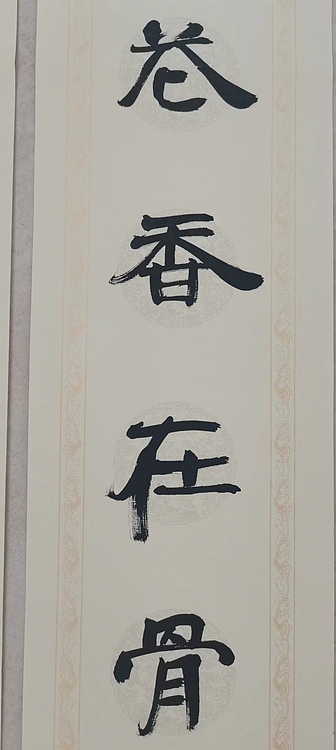 卷香在骨